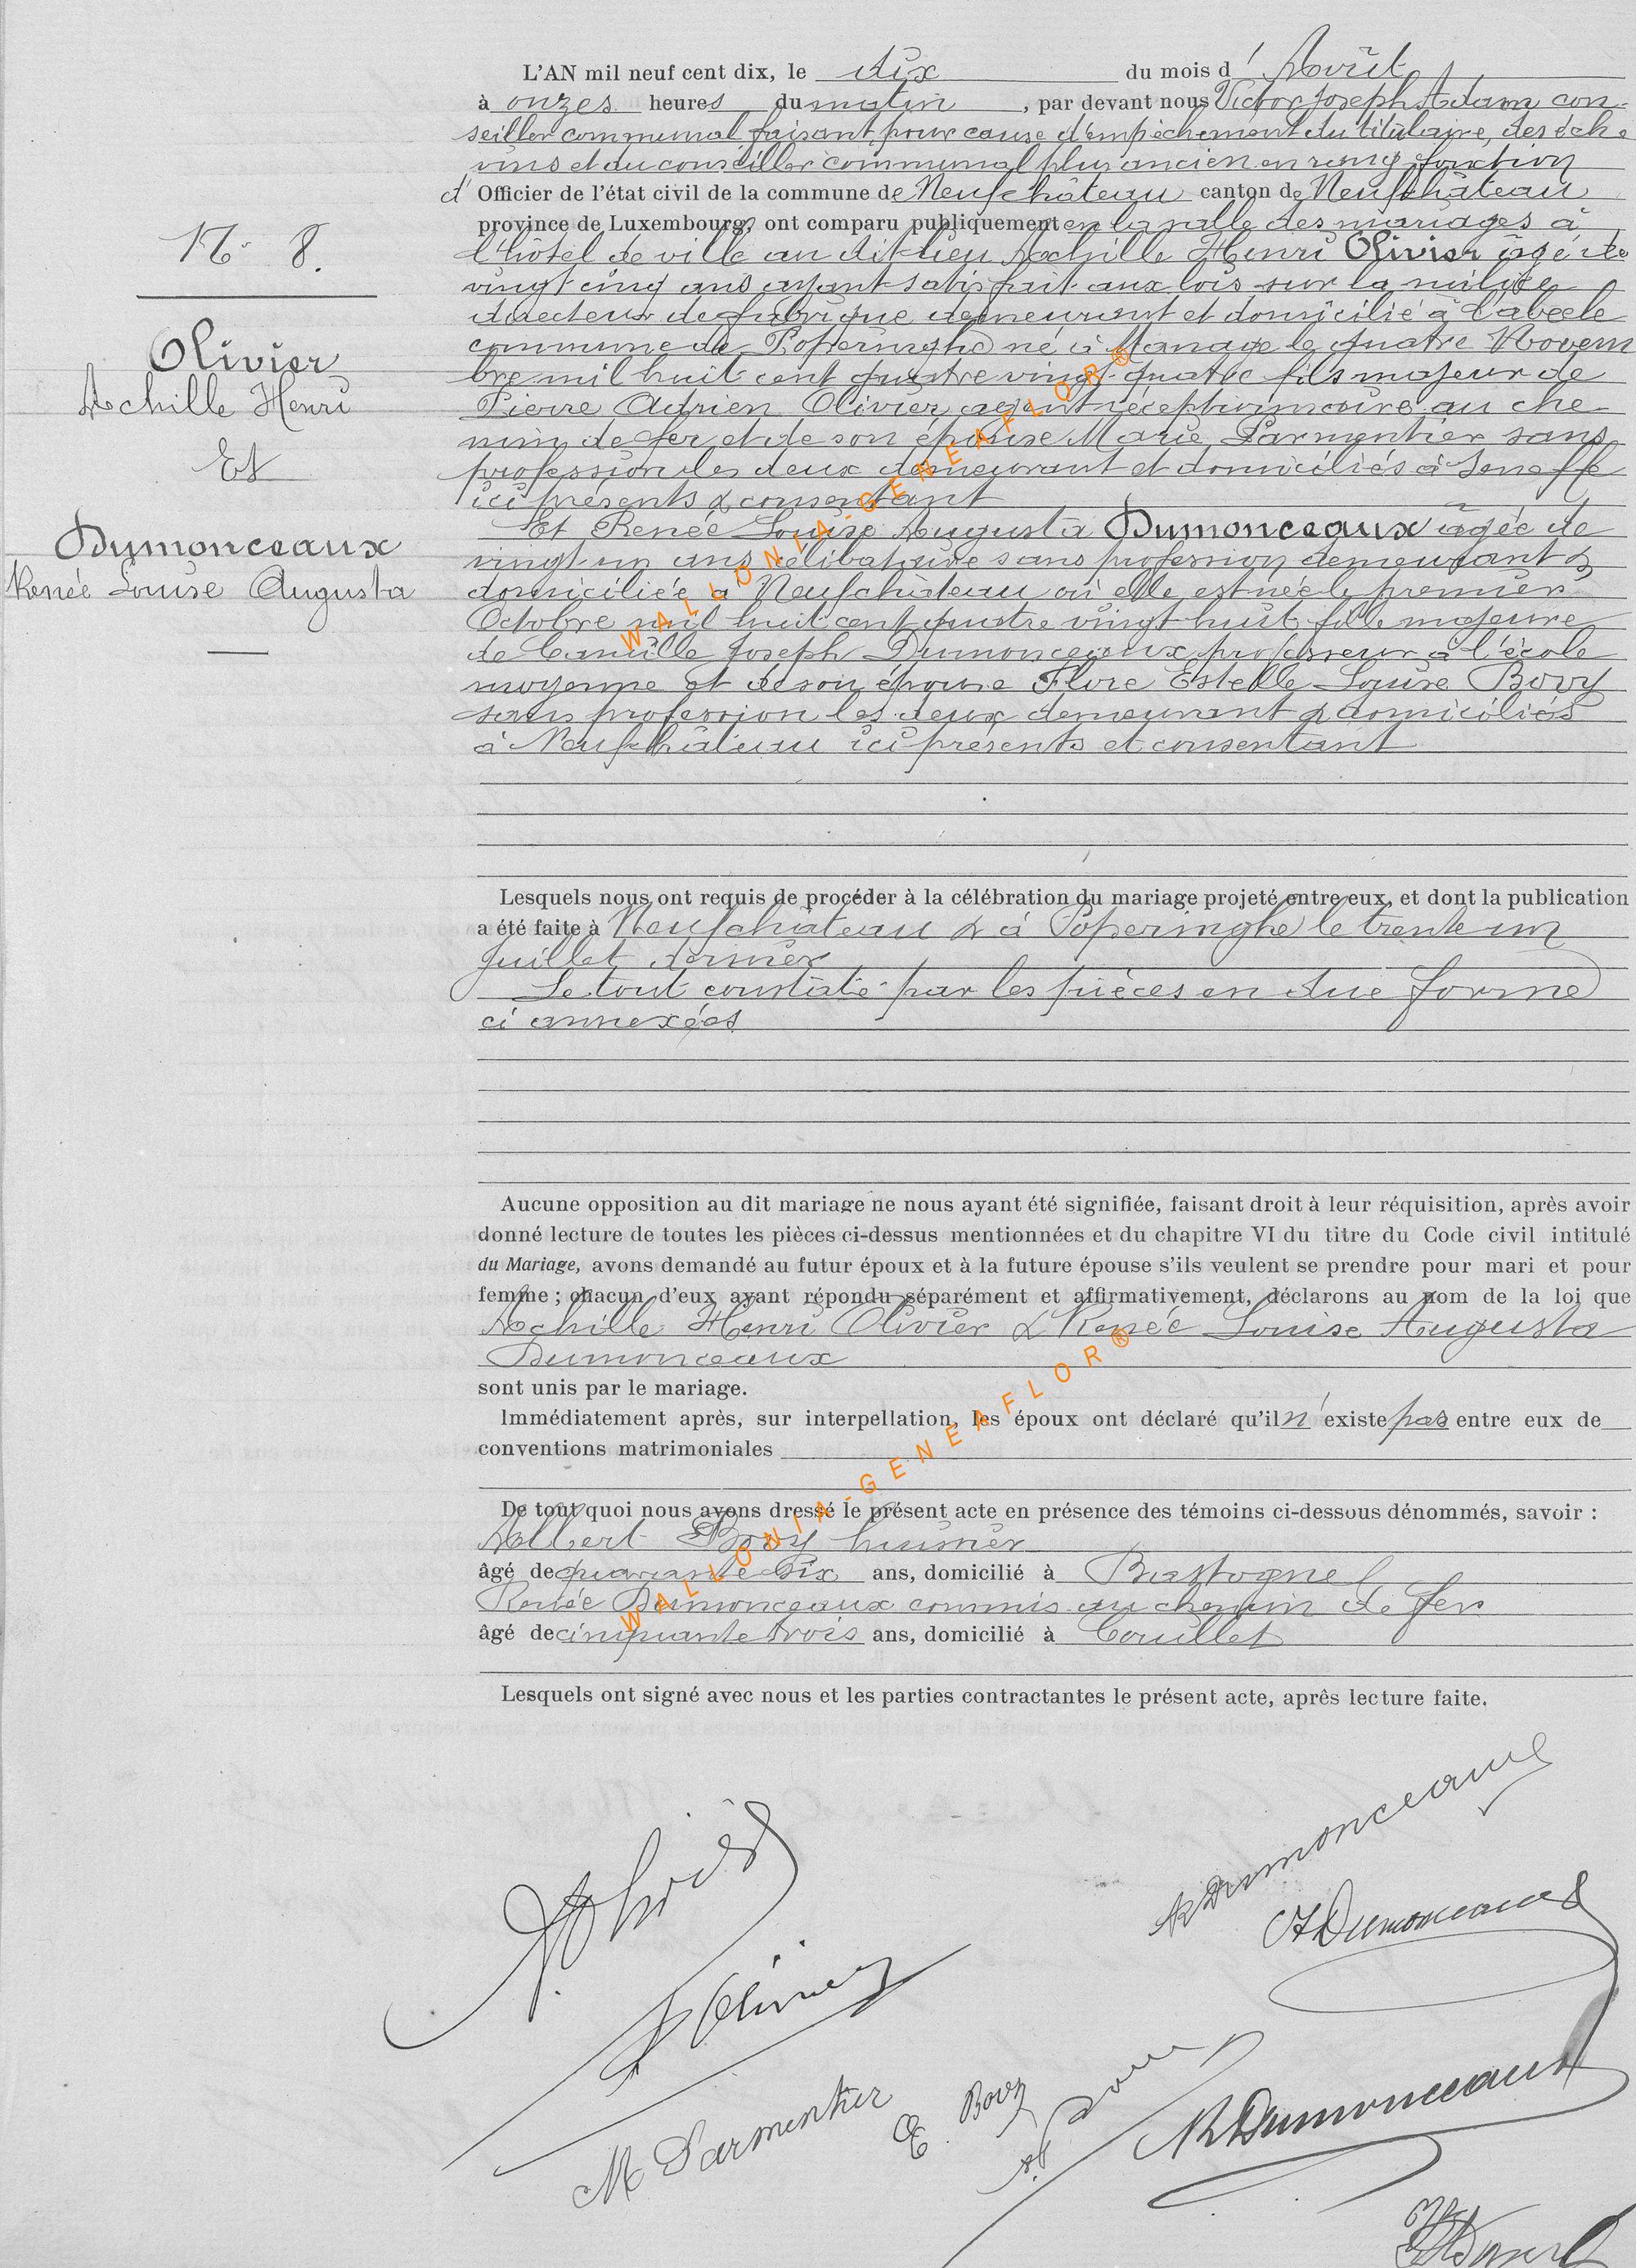 L'AN mil neuf cent dix, le dix du mois d'Août
à onzes heures du matin, par devant nous Victor Joseph Adam con-
seiller communal faisant, pour cause d'empêchement du titulaire, des éche
vins et du conseiller communal plus ancien en rang fonction
d'Officier de l'état civil de la commune de Neufchâteau canton de Neufchâteau
province de Luxembourg, ont comparu publiquement en la salle des mariages à
l'hôtel de ville au dit lieu Achille Henri Olivier âgé de
vingt cinq ans ayant satisfait aux lois sur la milice
directeur de fabrique demeurant et domicilié à l'abeele
commune de Poperinghe né à Manage le quatre Novem
bre mil huit cent quatre vingt-quatre fils majeur de
Pierre Adrien Olivier agent réceptionnaire au che-
min de fer et de son épouse Marie Parmentier sans
profession les deux demeurant et domiciliés à Seneffe
ici présents & consentant
Et Renée Louise Augusta Dumonceaux âgée de
vingt-un ans célibataire sans profession demeurant &
domiciliée à Neufchâteau où elle est née le premier
Octobre mil huit cent quatre vingt huit fille majeure
de Camille Joseph Dumonceaux professeur à l'école
moyenne et de son épouse Flore Estelle Louise Bovy
sans profession les deux demeurant & domiciliés
à Neufchâteau ici présents et consentant
No 8.
Olivier
Achille Henri
Et
Dumonceaux
Renée Louise Augusta
Lesquels nous ont requis de procéder à la célébration du mariage projeté entre eux, et dont la publication
a été faite à Neufchâteau & à Poperinghe le trente un
Juillet dernier
Le tout constaté par les pièces en due forme
ci annexées
Aucune opposition au dit mariage ne nous ayant été signifiée, faisant droit à leur réquisition, après avoir
donné lecture de toutes les pièces ci-dessus mentionnées et du chapitre VI du titre du Code civil intitulé
du Mariage, avons demandé au futur époux et à la future épouse s'ils veulent se prendre pour mari et pour
femme ; chacun d'eux ayant répondu séparément et affirmativement, déclarons au nom de la loi que
Achille Henri Olivier & Renée Louise Augusta
Dumonceaux
sont unis par le mariage.
Immédiatement après, sur interpellation, les époux ont déclaré qu'il n'existe pas entre eux de
conventions matrimoniales
De tout quoi nous avons dressé le présent acte en présence des témoins ci-dessous dénommés, savoir :
Albert Bovy huissier
âgé de quarante six ans, domicilié à Bastogne
Renée Dumonceaux commis au chemin de fer
âgé de cinquante trois ans, domicilié à Couillet
Lesquels ont signé avec nous et les parties contractantes le présent acte, après lecture faite.
R Dumonceaux
Dumonceaux
Olivier
M Parmentier
E. Bovy
R Dumonceaux
WALLONIA-GENEAFLOR®
WALLONIA-GENEAFLOR®